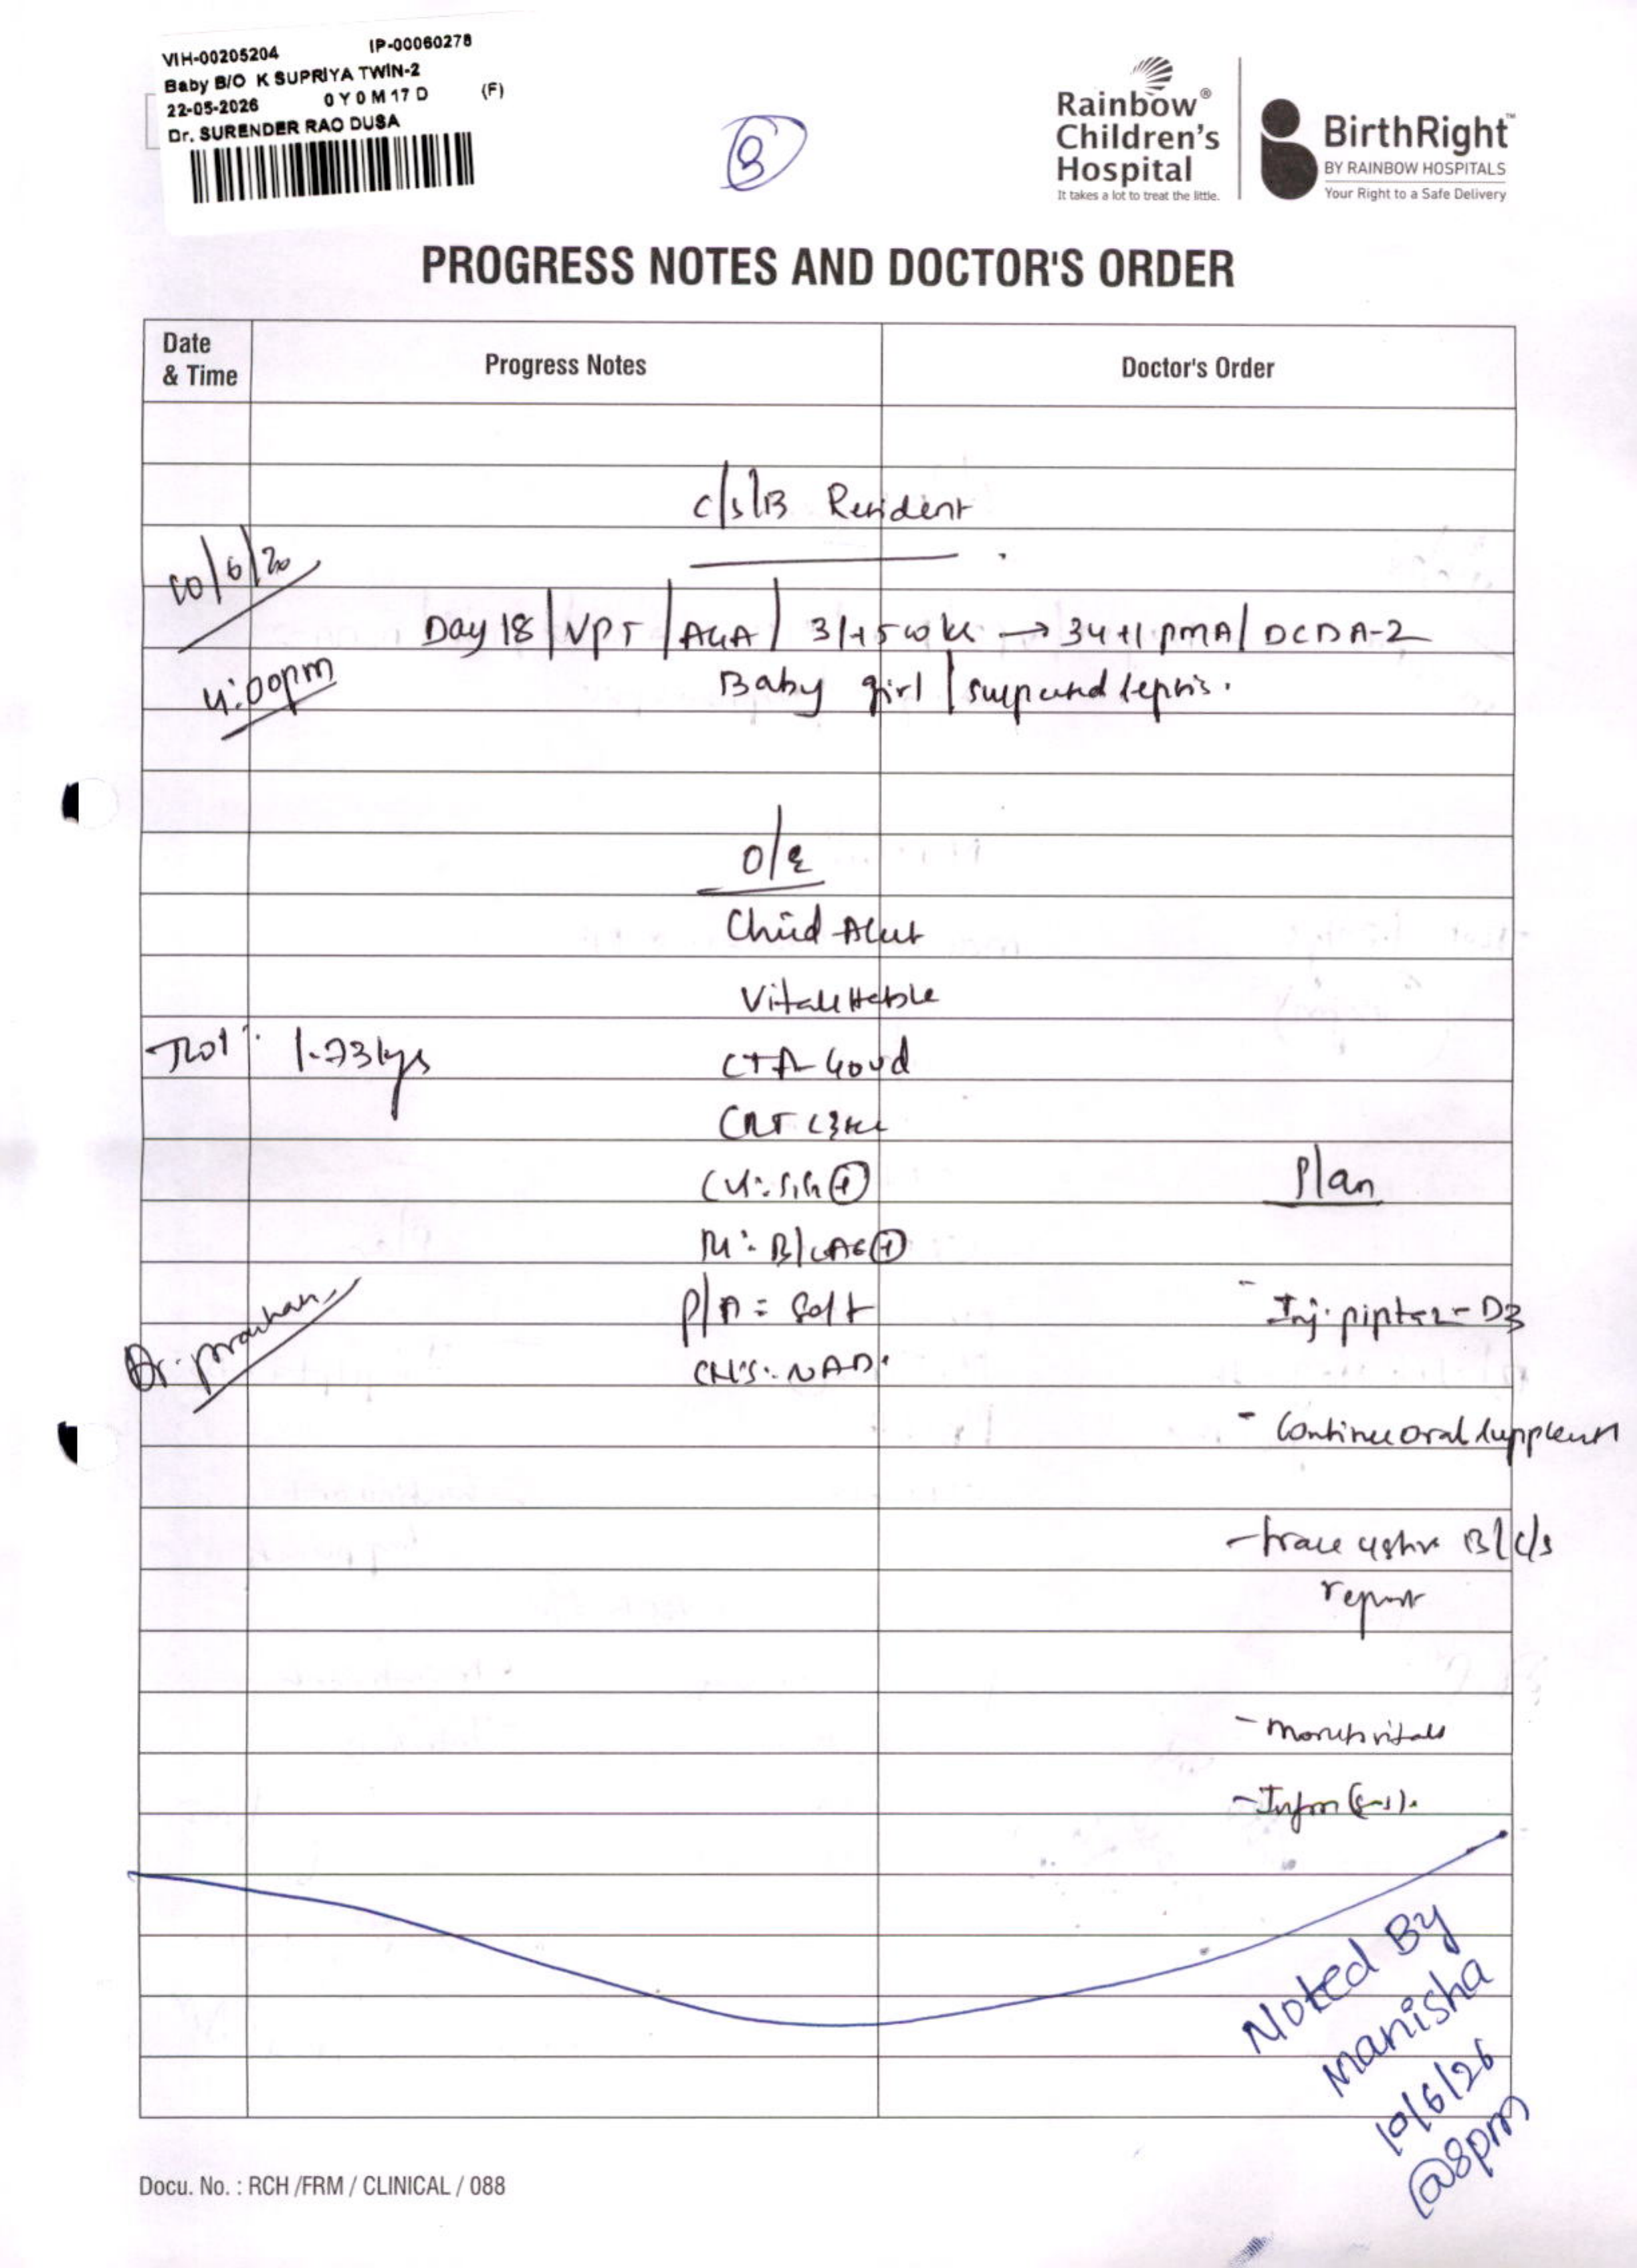 VIH-00205204 IP-00060278
Baby B/O K SUPRIYA TWIN-2
22-05-2026 0 Y 0 M 17 D (F)
Dr. SURENDER RAO DUSA
Rainbow®
Children's
Hospital
It takes a lot to treat the little.
BirthRight™
BY RAINBOW HOSPITALS
Your Right to a Safe Delivery
PROGRESS NOTES AND DOCTOR'S ORDER
Date & Time
Progress Notes
Doctor's Order
c/s/B Resident
4:00pm
Day 18 | VPT | AGA | 31+5 wks → 34+1 PMA | DCDA-2
Baby girl | suspected sepsis.
O/E
Child Alert
Vitals stable
1.73kgs
CTA Good
CRT <3sec
Plan
P/A = Soft
CNS: NAD.
Dr.
- Inj. piptaz - D3
- Continue oral supplements
- trace B/C/s
report
- Monitor vitals
- Inform
Noted By
Manisha
10/6/26
@8pm
Docu. No. : RCH /FRM / CLINICAL / 088